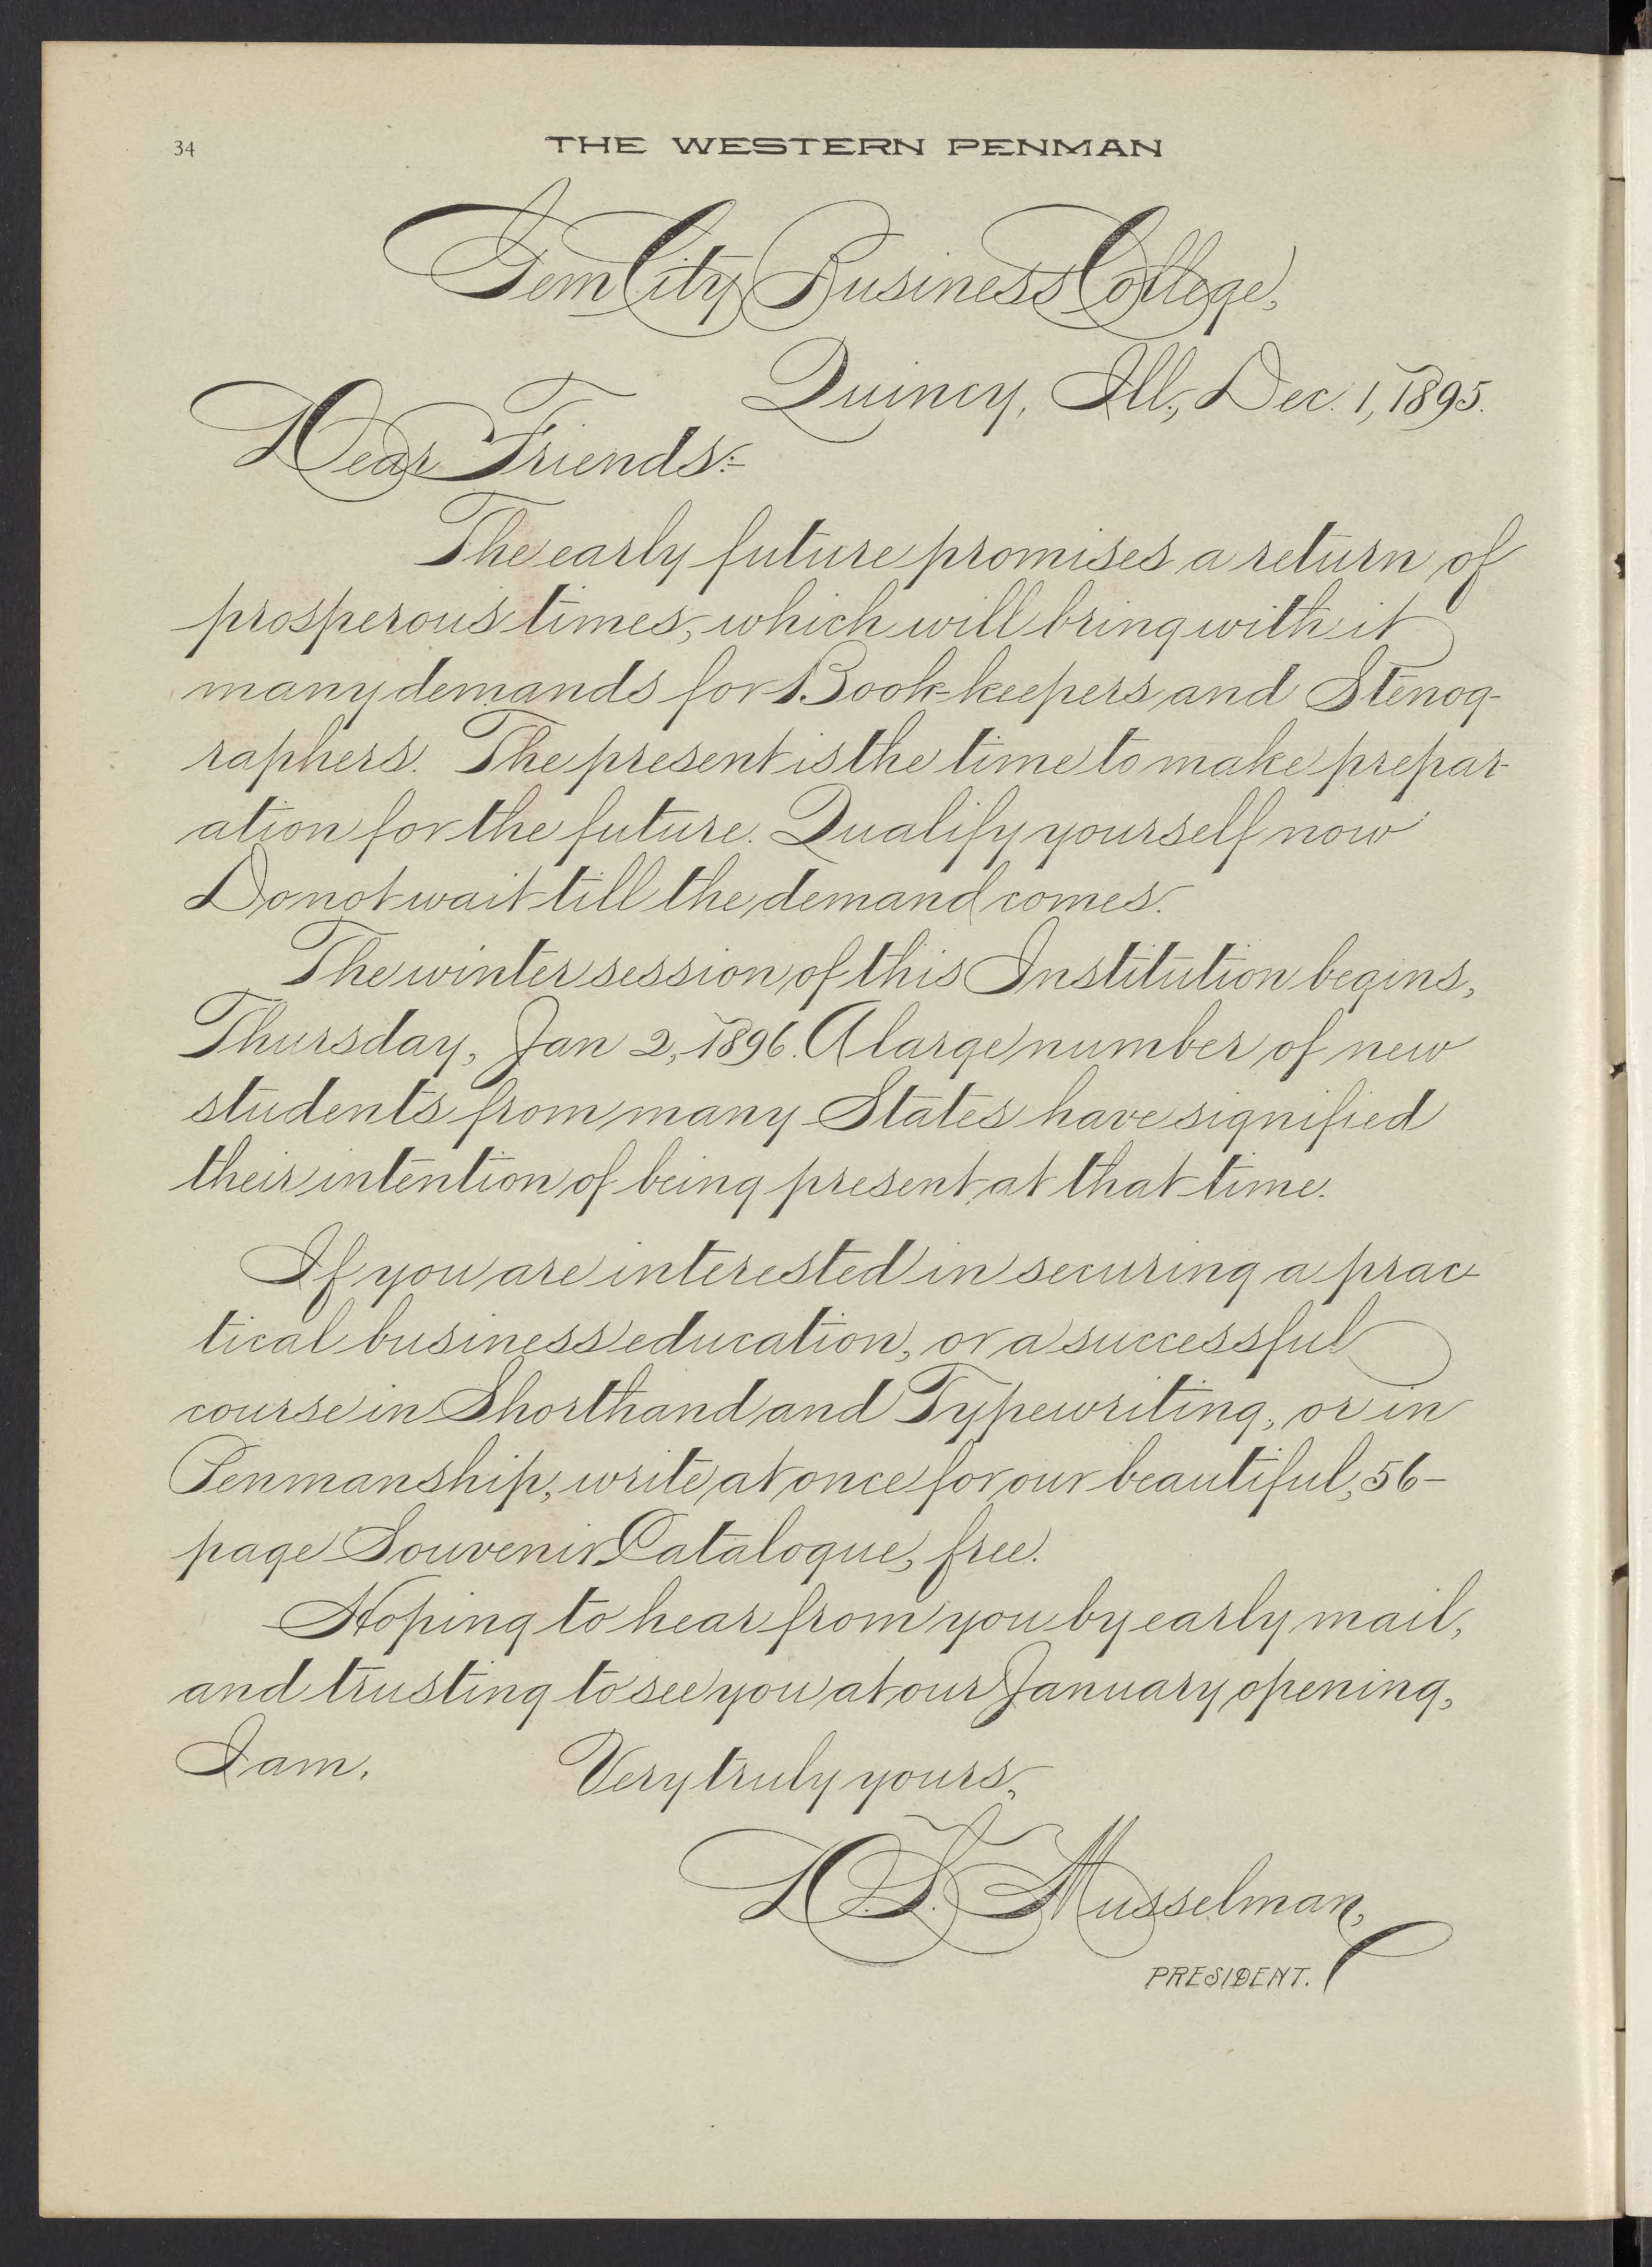 34
THE WESTERN PENMAN
Gem City Business College,
Quincy, Ill., Dec. 1, 1895.
Dear Friends:-
The early future promises a return of
prosperous times, which will bring with it
many demands for Book-keepers and Stenog-
raphers. The present is the time to make prepar-
ation for the future. Qualify yourself now
Do not wait till the demand comes.
The winter session of this Institution begins,
Thursday, Jan 2, 1896. A large number of new
students from many States have signified
their intention of being present at that time.
If you are interested in securing a prac-
tical business education, or a successful
course in Shorthand and Typewriting, or in
Penmanship, write at once for our beautiful, 56-
page Souvenir Catalogue, free.
Hoping to hear from you by early mail,
and trusting to see you at our January opening,
I am.
Very truly yours,
D. L. Musselman,
PRESIDENT.